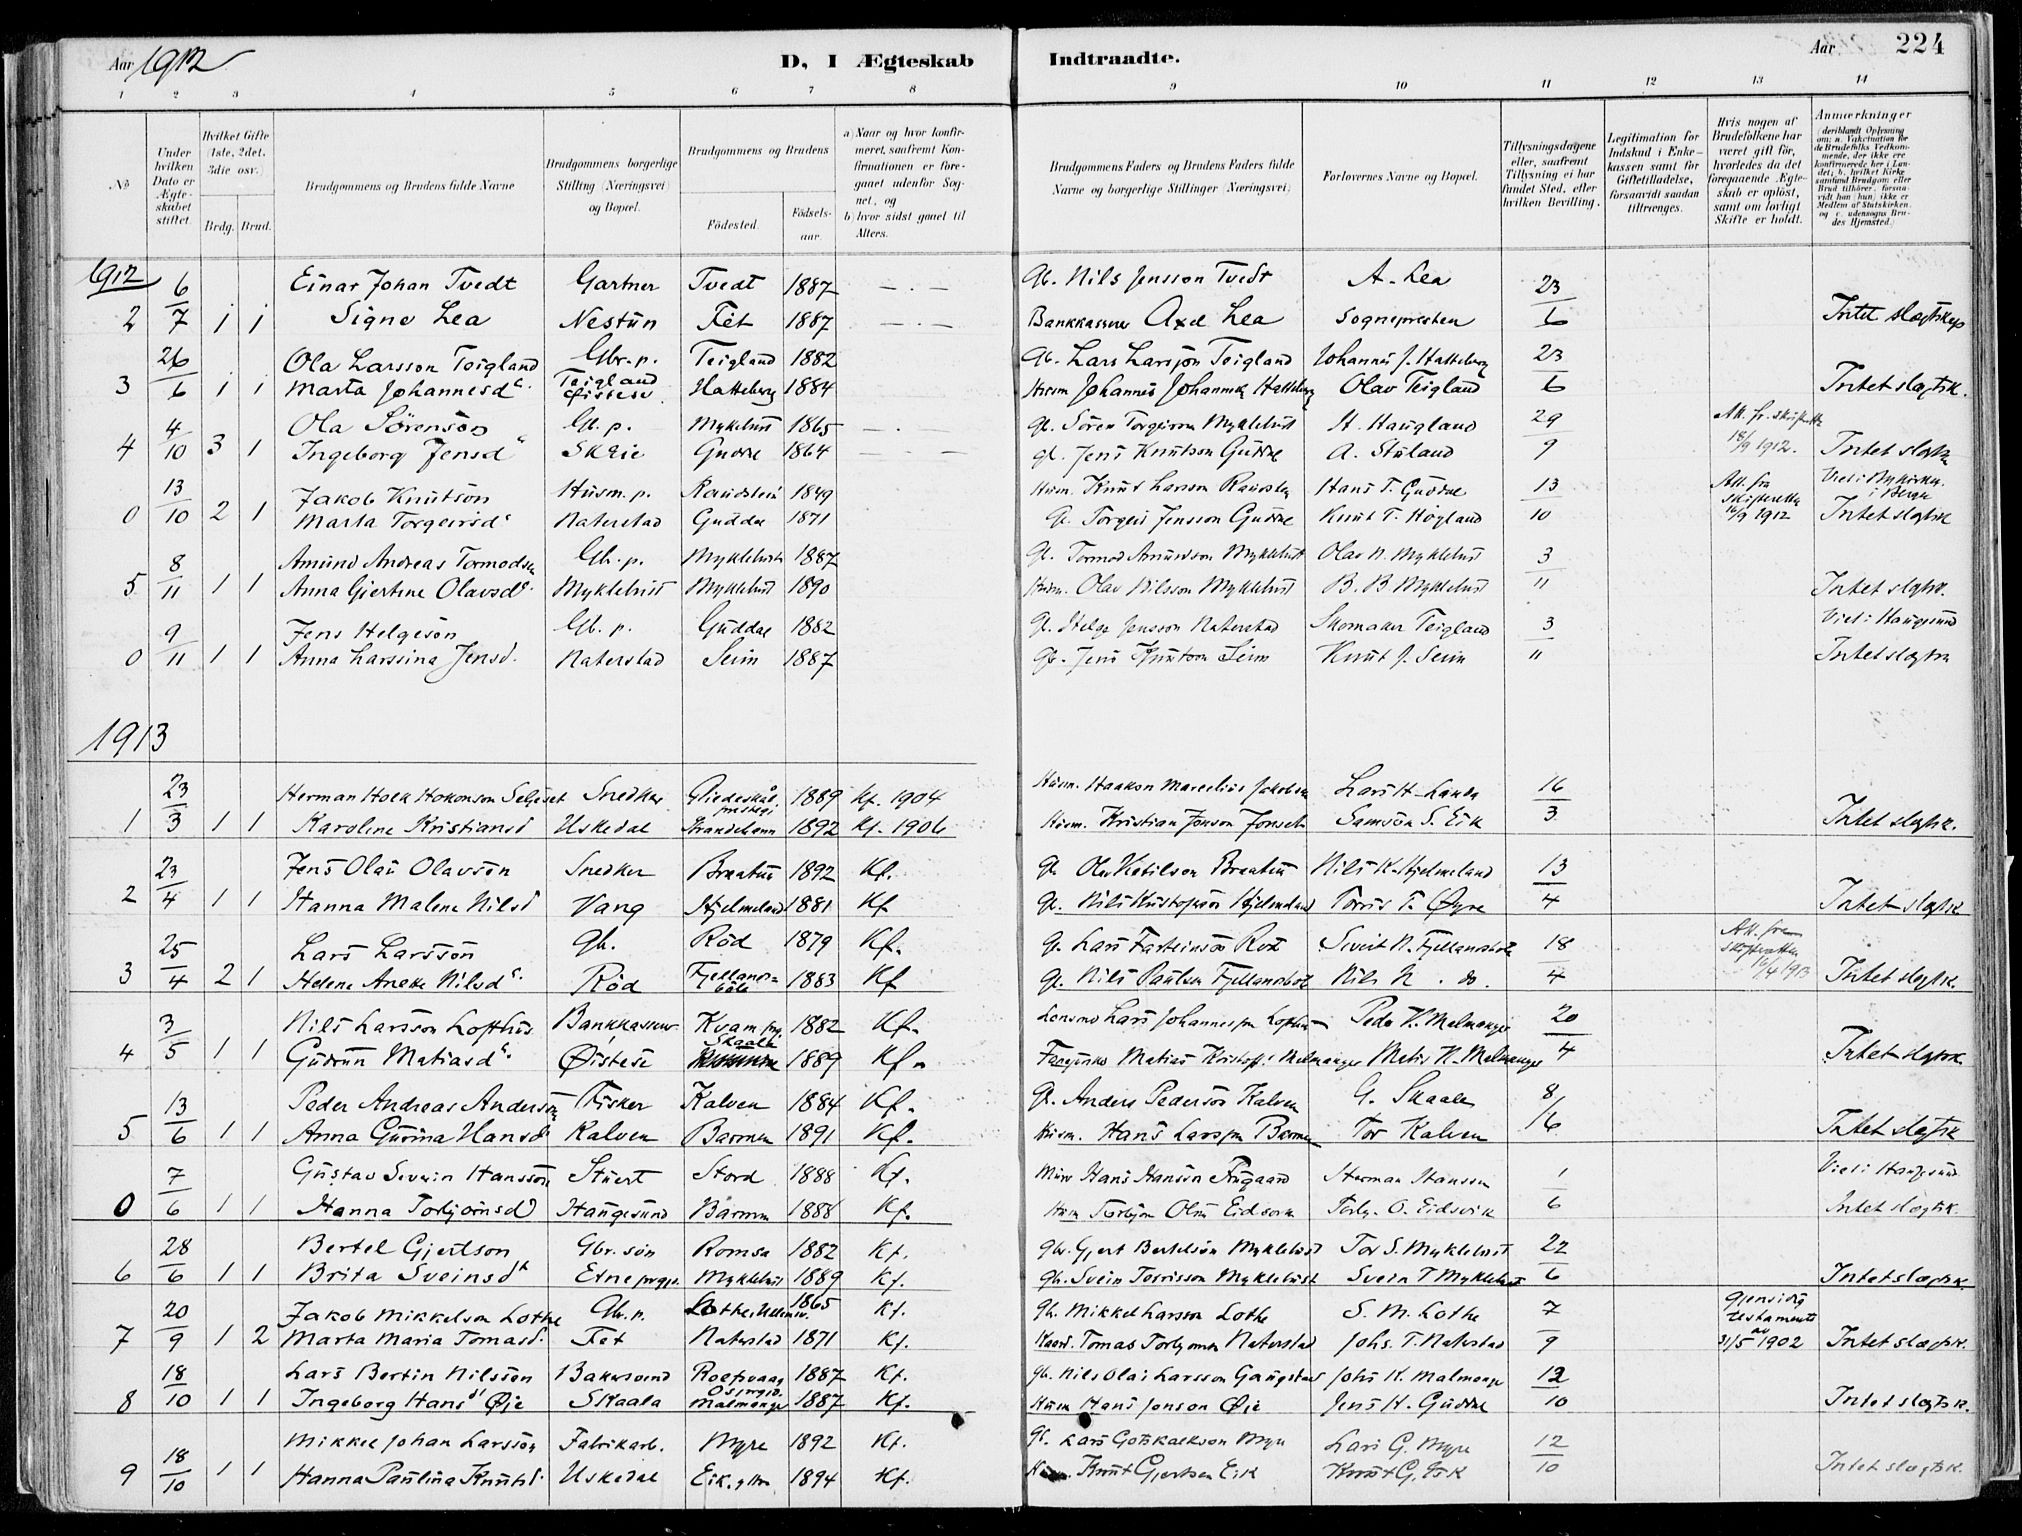 Aar 1912
D, I Ægteskab Indtraadte.
Aar 224
1 2 3 4 5 6 7 8 9 10 11 12 13 14
No
Under hvilken Dato er Ægteskabet stiftet.
Hvilket Gifte (1ste, 2det, 3die osv.)
Brdg. Brud.
Brudgommens og Brudens fulde Navne
Brudgommens borgerlige Stilling (Næringsvei) og Bopæl.
Brudgommens og Brudens
Fødested. Fødselsaar.
a) Naar og hvor konfirmeret, saafremt Konfirmationen er foregaaet udenfor Sognet, og
b) hvor sidst gaaet til Alters.
Brudgommens Faders og Brudens Faders fulde Navne og borgerlige Stillinger (Næringsvei)
Forlovernes Navne og Bopæl.
Tillysningsdagene eller, saafremt Tillysning ei har fundet Sted, efter hvilken Bevilling.
Legitimation for Indskud i Enkekassen samt for Giftetilladelse, forsaavidt saadan tiltrænges.
Hvis nogen af Brudefolkene har været gift før, hvorledes da det foregaaende Ægteskab er opløst, samt om lovligt Skifte er holdt.
Anmærkninger
1912
6 Einar Johan Tvedt Gartner Tvedt 1887 — . — Gb. Nils Jensson Tvedt A. Lea 23
2 7 1 1 Signe Lea Nestun Fet 1887 — . — Bankkasserer Axel Lea Sognepresten 6 Intet slægtskap
26 Ola Larsson Teigland Gbr. p. Teigland 1882 Gb. Lars Larsson Teigland Johannes J. Hatteberg 23
3 6 1 1 Marta Johannesd. Teigland Øistese Hatteberg 1884 Husm Johannes Hatteberg Olav Teigland 6 Intet slægtsk.
4 Ola Sørenson Gb. p. Myklebust 1865 — . — Gb. Søren Torgeirson Myklebust H. Haugland 29 Att. fr. skifteretten
4 10 3 1 Ingeborg Jensd Skeie Guddal 1864 — . — gb. Jens Knutson Guddal A. Støland 9 18/9 1912. Intet slægtsk
13 Jakob Knutson Husm. p. 1849 Husm. Knut Larsson Hans T. Guddal 13 Att. fra Viet i Nykirken i Bergen
0 10 2 1 Marta Torgeirsd Naterstad Guddal 1871 Gb. Torgeir Jensson Guddal Knut T. Høgland 10 skifteretten 16/9 1912 Intet slægtsk
8 Amund Andreas Tormodsen Gb. p. Myklebust 1887 Gb. Tormod Amundson Myklebust Olav N. Myklebust 3
5 11 1 1 Anna Gjertine Olavsd. Myklebust Myklebust 1890 Husm. Olav Nilsson Myklebust B. B Myklebust 11 Intet slægtsk.
9 Jens Helgeson Gb. p. Guddal 1882 Gb. Helge Jensson Naterstad Skomaker Teigland 3 Viet i Haugesund
0 11 1 1 Anna Larssina Jensd. Naterstad Seim 1887 Gb. Jens Knutson Seim Knut J. Seim 11 Intet slægtsk
1913
23 Herman Holk Hokonson Snedker Gliedeskål prestegj. 1889 Kf. 1904 Husm. Haakon Marcelius Jakobsen Lars H. Landa 16
1 3 1 1 Karoline Kristiansd Uskedal 1892 Kf. 1906 Husm. Kristian Jonson Samson S. Eik 3 Intet slægtsk.
23 Jens Olai Olavson Snedker Braatun 1892 Kf. Gb. Olav Ketilson Braatun Nils K. Hjelmeland 13
2 4 1 1 Hanna Malene Nilsd Vang Hjelmeland 1881 Kf Gb. Nils Kristofson Hjelmeland Torris T. Øyre 4 Intet slægtsk
25 Lars Larsson Gb. Rød 1879 Kf. Gb. Lars Farteinson Rød Sivert N. Fjellandsbøl 18 Att. fra
3 4 2 1 Helene Aneke Nilsd. Rød Fjellandsbøl 1883 Kf Gb. Nils Paulsen Fjellandsbøl Nils N. do. 4 skifteretten 16/4 1913 Intet slægtsk
3 Nils Larsson Lofthus Bankkasserer Kvam prg. 1882 Kf. Lensmd Lars Johannesson Lofthus Peder K. Malmanger 20
4 5 1 1 Gudrun Matiasd. Øistese Skaala 1889 Kf. Matias Kristoffs. Malmanger Matis K. Malmanger 4 Intet slægtsk
13 Peder Andreas Anderson Fisker Kalven 1884 Kf. Gb. Anders Pederson Kalven G. Skaala 8
5 6 1 1 Anna Gurina Hansd Kalven Barmen 1891 Kf. Husm. Hans Larsson Barmen Tor Kalven 6 Intet slægtsk
7 Gustav Severin Hansson Stuert Stord 1888 Kf. Murer Hans Hanson Herman Hanssen 1 Viet i Haugesund
0 6 1 1 Hanna Torbjørnsd Haugesund Barmen 1888 Kf. Husm Torbjørn Olsen Eidsvik Torbj. O. Eidsvik 6 Intet slægtsk.
28 Bertel Gjertson Gbr. søn Romsa 1882 Kf. gbr. Gjert Bertelson Myklebust Tor S. Myklebust 22
6 6 1 1 Brita Sveinsd Etne prgj. Myklebust 1889 Kf. gb. Svein Torrisson Myklebust Svein T Myklebust 6 Intet slægtsk.
20 Jakob Mikkelson Lothe Gb. p. Lothe, Ullensv. 1865 Kf. gb. Mikkel Larsson Lothe S. M. Lothe 7 gjensidig testamente av
7 9 1 2 Marta Maria Tomasd. Fet Naterstad 1871 Kf. Tomas Torbjørnsen Naterstad Johs. T. Naterstad 9 31/5 1902 Intet slægtsk.
18 Lars Bertin Nilsson 1887 Kf. gb. Nils Olai Larsson Gaugstad Johs K. Malmange 12
8 10 1 1 Ingeborg Hansd Øie Skaala Malmange 1887 Kf. Husm Hans Jonson Øie Jens H. Guddal 10 Intet slægtsk.
18 Mikkel Johan Larsson Fabrikarb. Myre 1892 Kf. Gb. Lars Gotskalkson Myre Lars G. Myre 12
9 10 1 1 Hanna Paulina Knutsd. Uskedal Eik 1894 Kf. Knut Gjertsen Eik Knut G. Eik 10 Intet slægtsk.